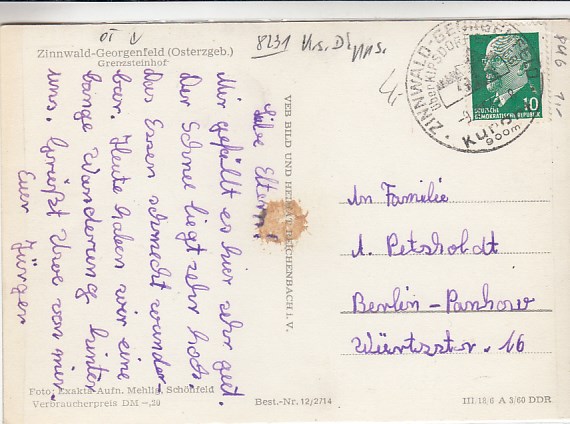 Zinnwald-Georgenfeld (Osterzgeb.)
Grenzsteinhof
8231
Liebe Eltern!
Mir gefällt es hier sehr gut.
Der Schnee liegt sehr hoch.
das Essen schmeckt wunder,
bar. Heute haben wir eine
lange Wanderung hinter
uns. Grüßt Uwe von mir.
Euer Jürgen
Foto: Exakta Aufn. Mehlig, Schönfeld
Verbraucherpreis DM -,20
VEB BILD UND HEIMAT REICHENBACH i. V.
Best.-Nr. 12/2/14
ZINNWALD-GEORGENFELD
über KIPSDORF
900m
10
DEUTSCHE
DEMOKRATISCHE REPUBLIK
An Familie
A. Petzholdt
Berlin-Pankow
Würtzstr. 16
III/18/6 A 3/60 DDR